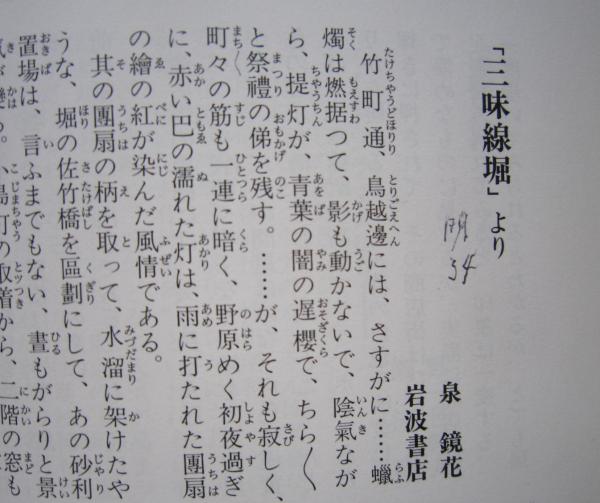 「三味線堀」より
明34
泉 鏡花
岩波書店
竹町通、鳥越邊には、さすがに……蠟
燭は燃据つて、影も動かないで、陰氣なが
ら、提灯が、青葉の闇の遅櫻で、ちら〱
と祭禮の俤を残す。……が、それも寂しく、
町々の筋も一連に暗く、野原めく初夜過ぎ
に、赤い巴の濡れた灯は、雨に打たれた團扇
の繪の紅が染んだ風情である。
其の團扇の柄を取って、水溜に架けたや
うな、堀の佐竹橋を區劃にして、あの砂利
置場は、言ふまでもない、晝もがらりと景
島町の取着から、二階の窓も